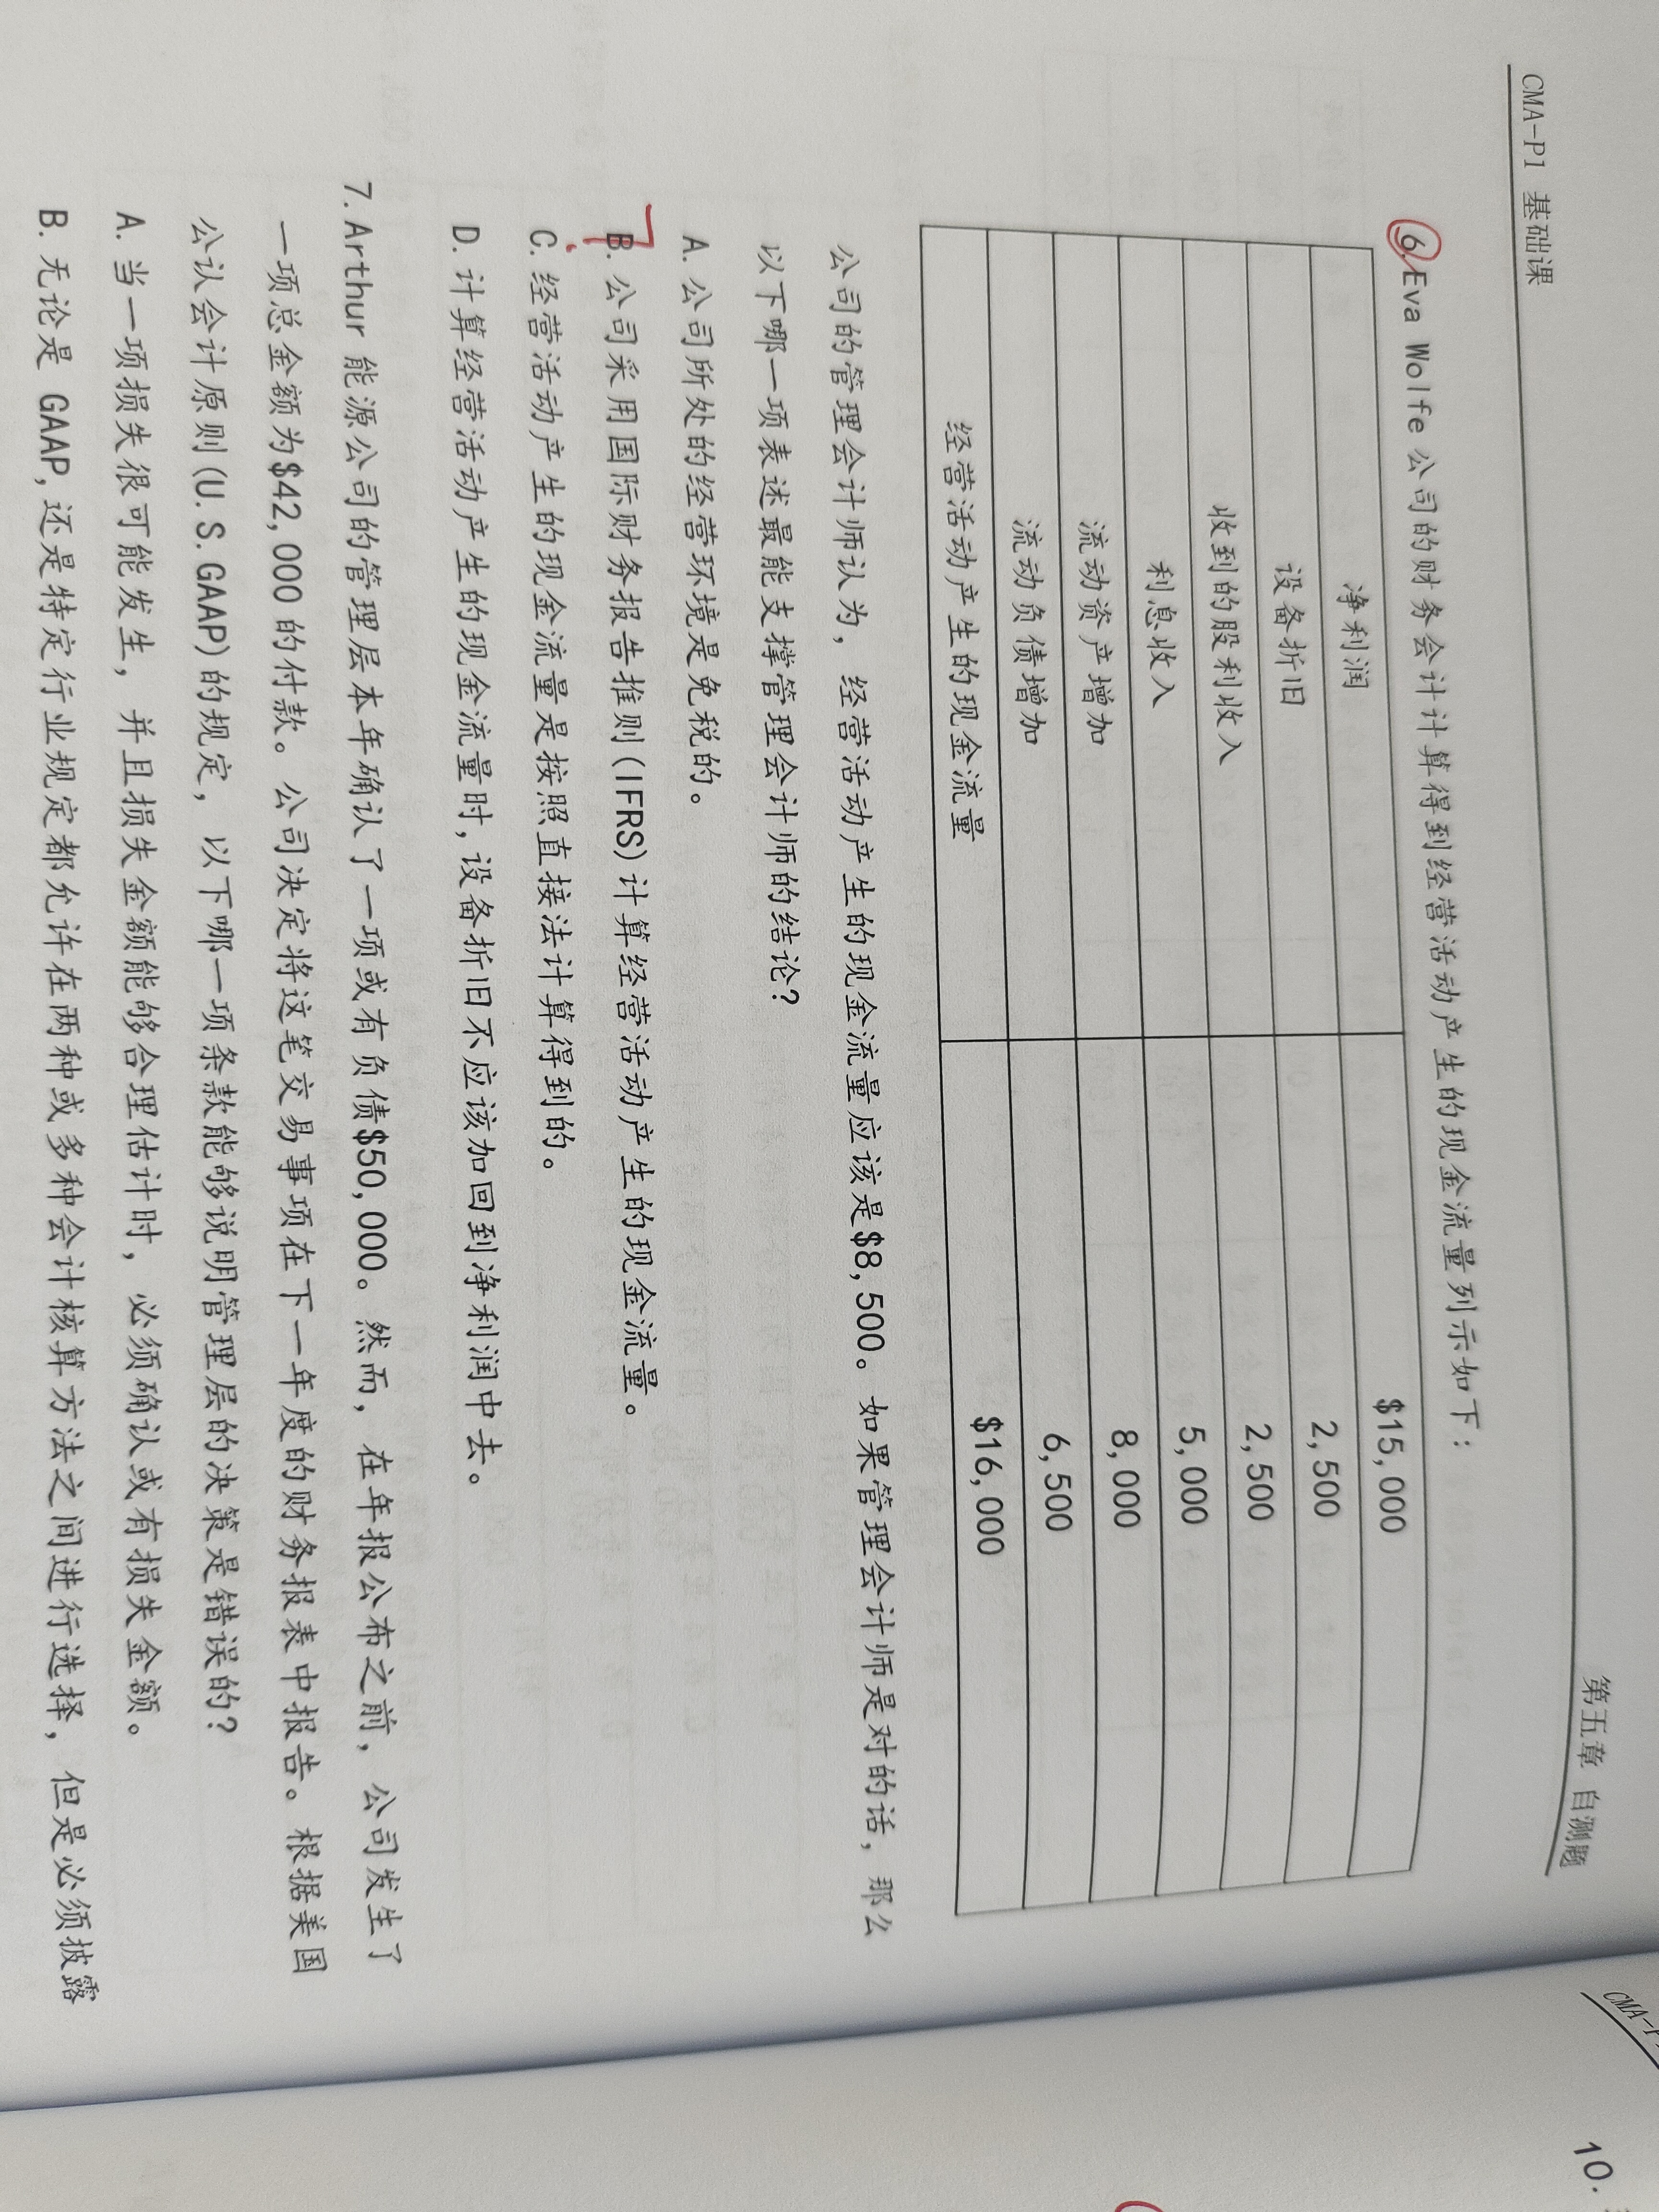 CMA-P1 基础课
第五章 自测题
6.Eva Wolfe 公司的财务会计计算得到经营活动产生的现金流量列示如下：
净利润 $15,000
设备折旧 2,500
收到的股利收入 2,500
利息收入 5,000
流动资产增加 8,000
流动负债增加 6,500
经营活动产生的现金流量 $16,000
公司的管理会计师认为，经营活动产生的现金流量应该是$8,500。如果管理会计师是对的话，那么
以下哪一项表述最能支撑管理会计师的结论？
A. 公司所处的经营环境是免税的。
B. 公司采用国际财务报告推则(IFRS)计算经营活动产生的现金流量。
C. 经营活动产生的现金流量是按照直接法计算得到的。
D. 计算经营活动产生的现金流量时，设备折旧不应该加回到净利润中去。
7. Arthur 能源公司的管理层本年确认了一项或有负债$50,000。然而，在年报公布之前，公司发生了
一项总金额为$42,000 的付款。公司决定将这笔交易事项在下一年度的财务报表中报告。根据美国
公认会计原则(U.S.GAAP)的规定，以下哪一项条款能够说明管理层的决策是错误的？
A. 当一项损失很可能发生，并且损失金额能够合理估计时，必须确认或有损失金额。
B. 无论是 GAAP,还是特定行业规定都允许在两种或多种会计核算方法之间进行选择，但是必须披露
CMA-P
10.